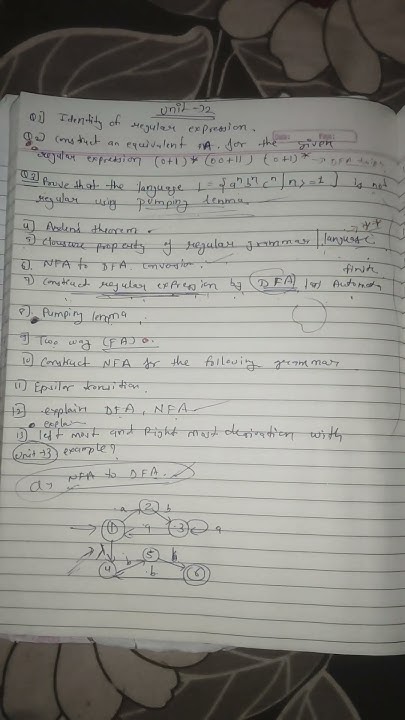 Unit → 2
Q1] Identity of regular expression.
Q2] construct an equivalent for the given
regular expression (0+1)* (00+11) (0+1)* →
Q3] Prove that the language L = { aⁿ bⁿ cⁿ | n >= 1 } is not
regular using pumping lemma.
4] Ardens theorem.
5] closure property of regular grammar | language
6] NFA to DFA conversion.
finite
7] Construct regular expression by DFA Automata
8]. Pumping lemma
9] Two way (FA)
10] Construct NFA for the following grammar
11] Epsilon transition
12] explain DFA, NFA
explain
13] left most and Right most derivation with
Unit → 3 example?
NFA to DFA.
a 2 b
1 a 3 a
λ
4 b 5 b 6
b